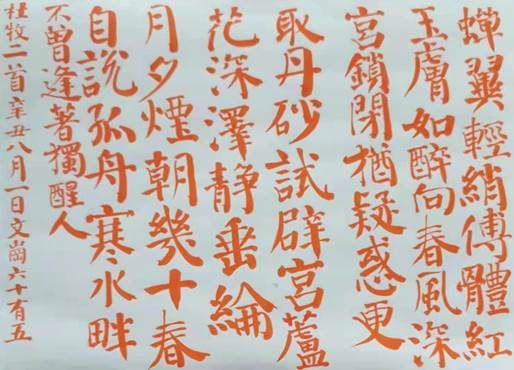 蟬翼輕綃傅體紅
玉膚如醉向春風深
宮鎖閉猶疑惑更
取丹砂試辟宮蘆
花深澤靜垂綸
月夕煙朝幾十春
自說孤舟寒水畔
不曾逢著獨醒人
杜牧二首辛丑八月一日文崗六十有五